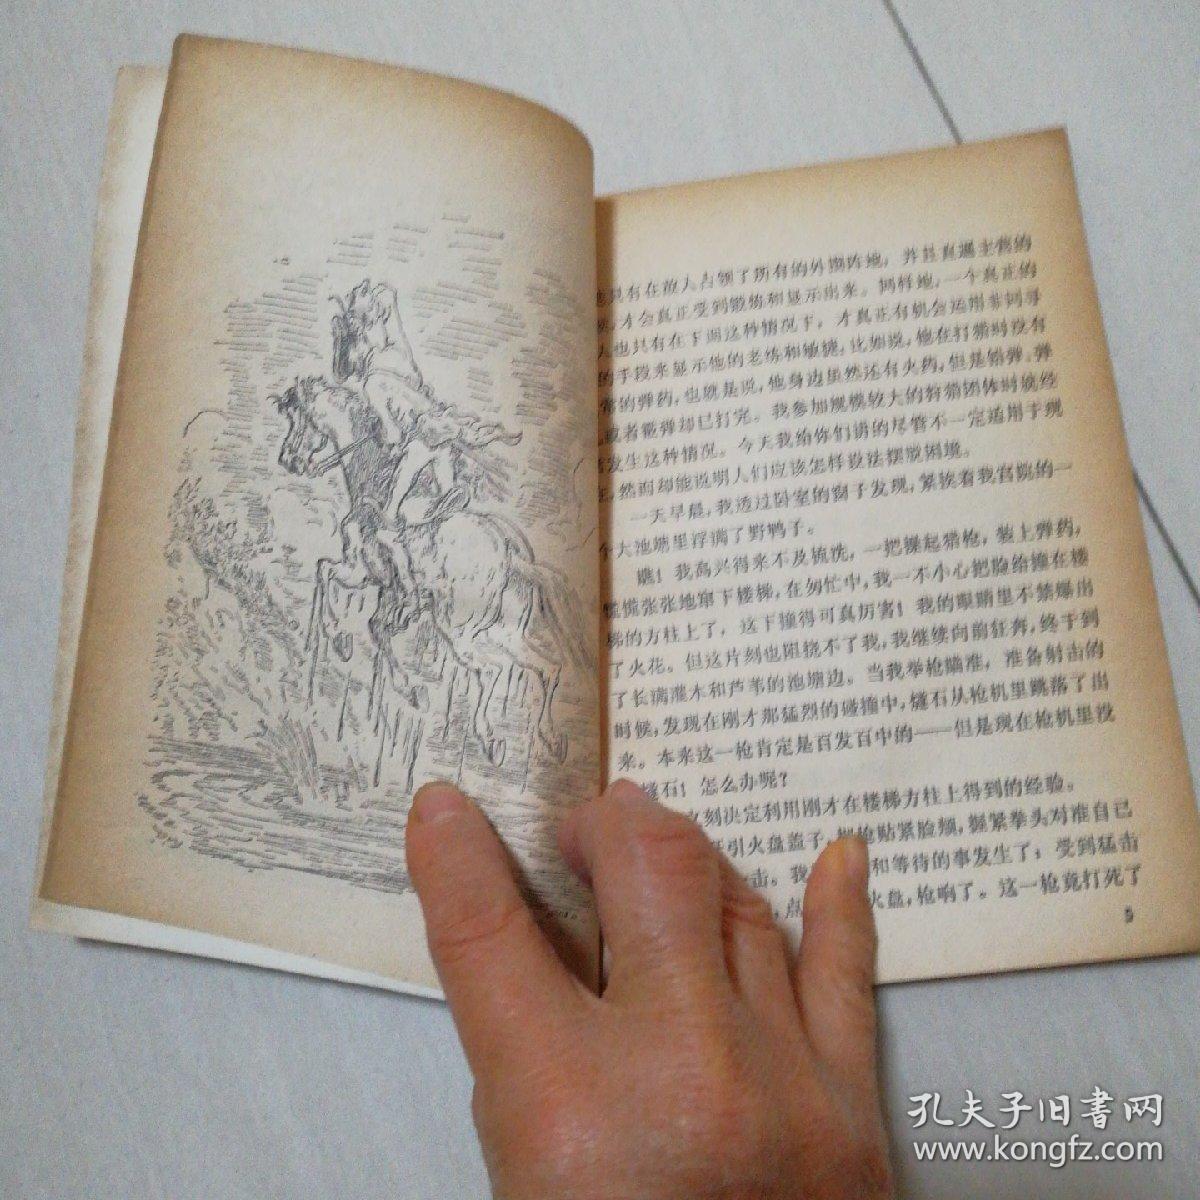 只有在敌人占领了所有的外围阵地，并且直逼主营的
，才会真正受到锻炼和显示出来。同样地，一个真正的
人也只有在下面这种情况下，才真正有机会运用非同寻
的手段来显示他的老练和敏捷，比如说，他在打猎时没有
常的弹药，也就是说，他身边虽然还有火药，但是铅弹、弹
或者霰弹却已打完。我参加规模较大的狩猎团体时就经
常发生这种情况。今天我给你们讲的尽管不一定适用于现
在，然而却能说明人们应该怎样设法摆脱困境。
一天早晨，我透过卧室的窗子发现，紧挨着我宫院的一
个大池塘里浮满了野鸭子。
瞧！我高兴得来不及梳洗，一把操起猎枪，装上弹药，
慌慌张张地窜下楼梯，在匆忙中，我一不小心把脸给撞在楼
梯的方柱上了，这下撞得可真厉害！我的眼睛里不禁爆出
了火花。但这片刻也阻挠不了我，我继续向前狂奔，终于到
了长满灌木和芦苇的池塘边。当我举枪瞄准，准备射击的
时候，发现在刚才那猛烈的碰撞中，燧石从枪机里跳落了出
来。本来这一枪肯定是百发百中的——但是现在枪机里没
燧石！怎么办呢？
刻决定利用刚才在楼梯方柱上得到的经验。
引火盘盖子，把枪贴紧脸颊，握紧拳头对准自己
击。我 和等待的事发生了：受到猛击
，点 火盘，枪响了。这一枪竟打死了
5
孔夫子旧书网
www.kongfz.com